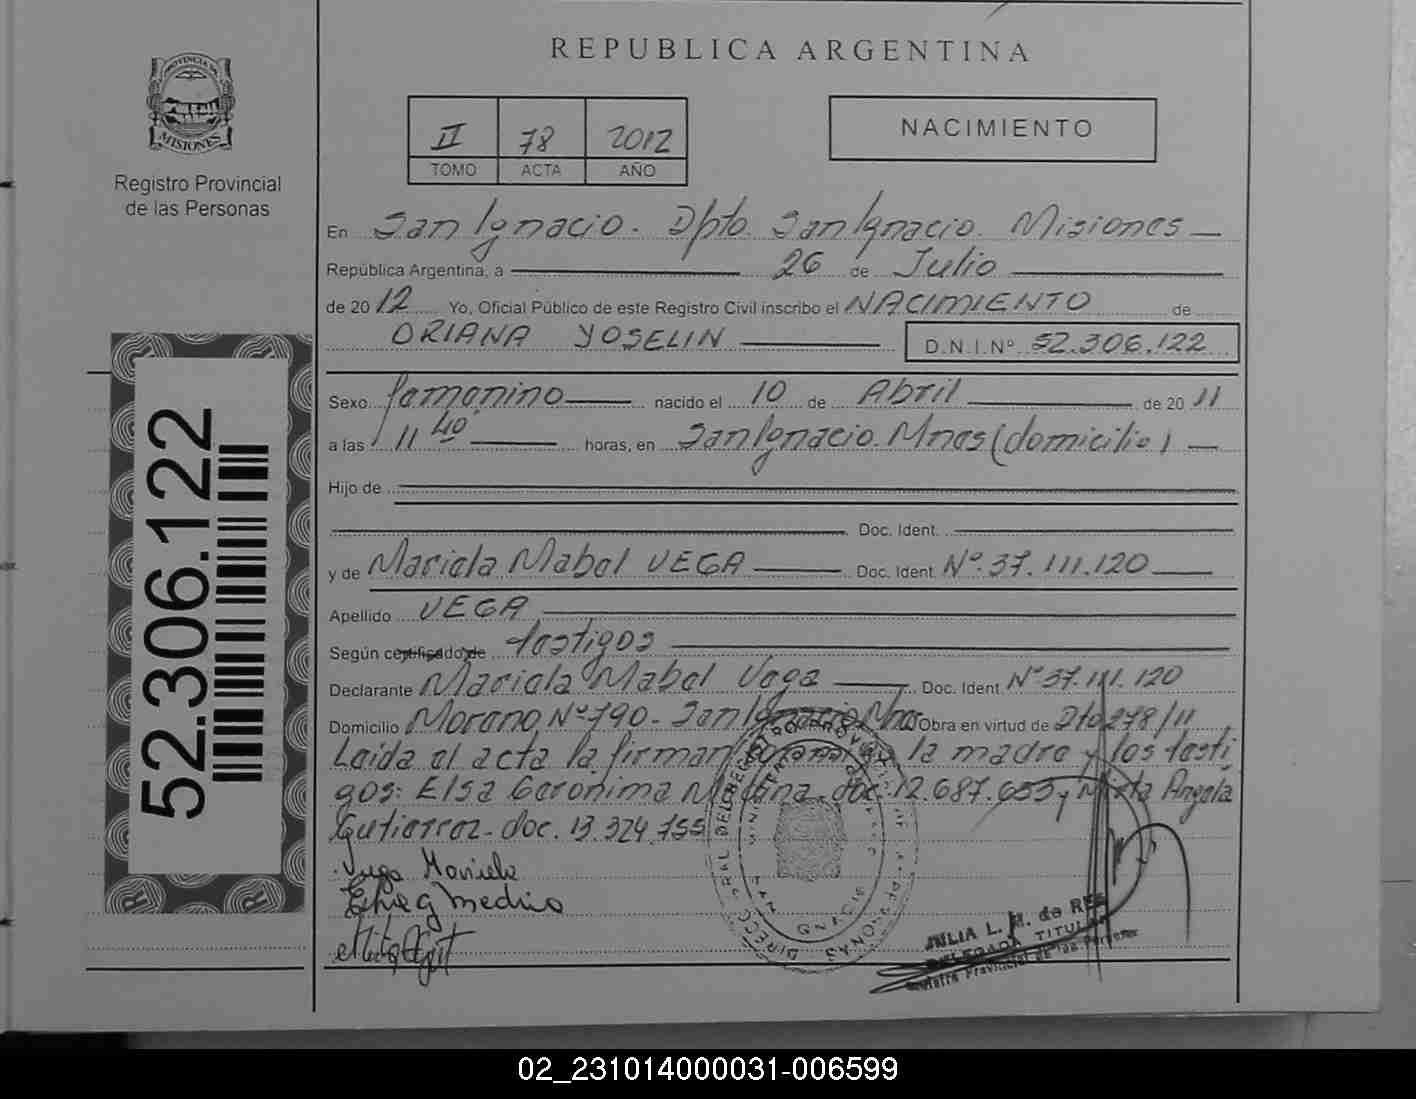 REPUBLICA ARGENTINA
PROVINCIA DE
MISIONES
Registro Provincial
de las Personas
II 78 2012
TOMO ACTA AÑO
NACIMIENTO
En San Ignacio. Dpto. San Ignacio. Misiones
República Argentina, a 26 de Julio
de 2012 Yo, Oficial Público de este Registro Civil inscribo el NACIMIENTO de
ORIANA YOSELIN D.N.I.Nº 52.306.122
Sexo femenino nacido el 10 de Abril de 2011
a las 11 40 horas, en San Ignacio. Mnes (domicilio)
Hijo de
Doc. Ident.
y de Mariela Mabel VEGA Doc. Ident. Nº 37.111.120
Apellido VEGA
Según certificado de testigos
Declarante Mariela Mabel Vega Doc. Ident. Nº 37.111.120
Domicilio Moreno Nº 790- San Ignacio Mnes Obra en virtud de Dto 278/11
Leida el acta la firman la madre y los testi
gos: Elsa Geronima Medina doc. 12.687.653 y Mirta Angela
Gutierrez- doc. 13.324.755
Vega Mariela
JULIA L. M. de REE
DELEGADA TITULAR
Registro Provincial de las Personas
52.306.122
02_231014000031-006599